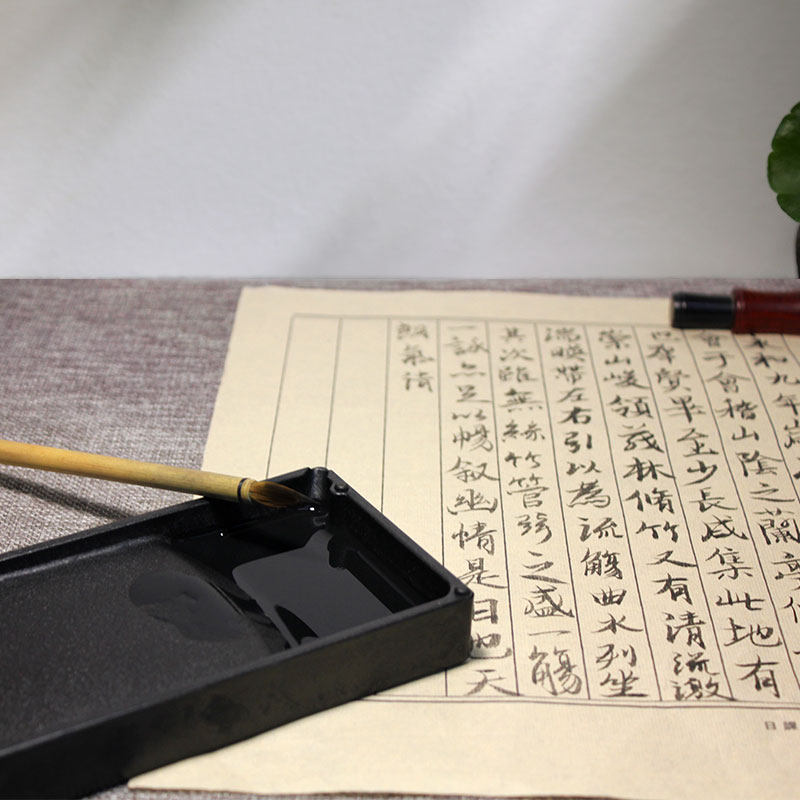 和九年歲
會于會稽山陰之蘭亭修
也群賢畢至少長咸集此地有
崇山峻領茂林脩竹又有清流激
湍暎帶左右引以為流觴曲水列坐
其次雖無絲竹管弦之盛一觴
一詠亦足以暢叙幽情是日也天
朗氣清
日課